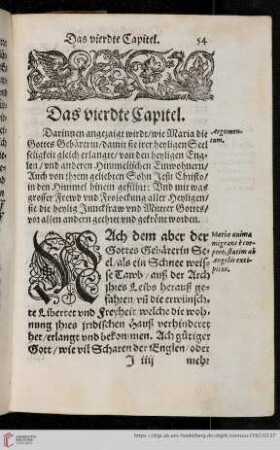 Das vierdte Capitel. 54
Das vierdte Capitel.
Darinnen angezaigt wirdt / wie Maria die
Gottes Gebärerin / damit sie irer heyligen Seel
seligkeit gleich erlangte / von den heyligen Eng-
len / vnd anderen Himmelischen Einwohnern /
Auch von jhrem geliebten Sohn Jesu Christo /
in den Himmel hinein gefühzt: Vnd mit was
grosser Frewd vnd Frolockung aller Heyligen /
sie die heylig Junckfraw vnd Mutter Gottes /
vor allen andern geehret vnd gekrönt worden.
Argumen-
tum.
NAch dem aber der
Gottes Gebärerin See-
l / als ein Schnee weiß-
se Tawb / auß der Arch
jhres Leibs herauß ge-
fahren / vñ die erwünsch-
te Libertet vnd Freyheit / welche die woh-
nung jhres jrdischen Hauß verhinderet
het / erlangt vnd bekommen. Ach gütiger
Gott / wie vil Scharen der Englen / oder
Maria anima
migrans è cor-
pore, statim ab
Angelis exci-
pitur.
J iiij mehr
UNIVERSITÄTS-
BIBLIOTHEK
HEIDELBERG